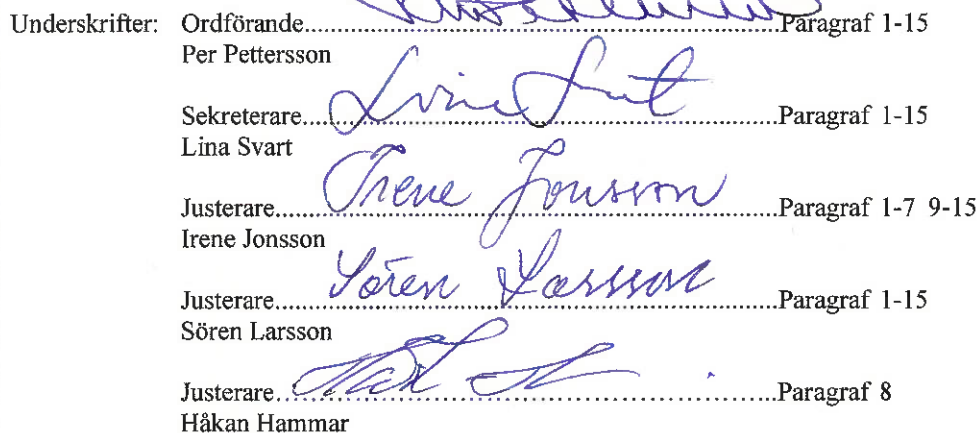 Underskrifter: Ordförande..............................Paragraf 1-15
Per Pettersson
Sekreterare....Lina Svart....Paragraf 1-15
Lina Svart
Justerare....Irene Jonsson....Paragraf 1-7 9-15
Irene Jonsson
Justerare....Sören Larsson....Paragraf 1-15
Sören Larsson
Justerare..............................Paragraf 8
Håkan Hammar